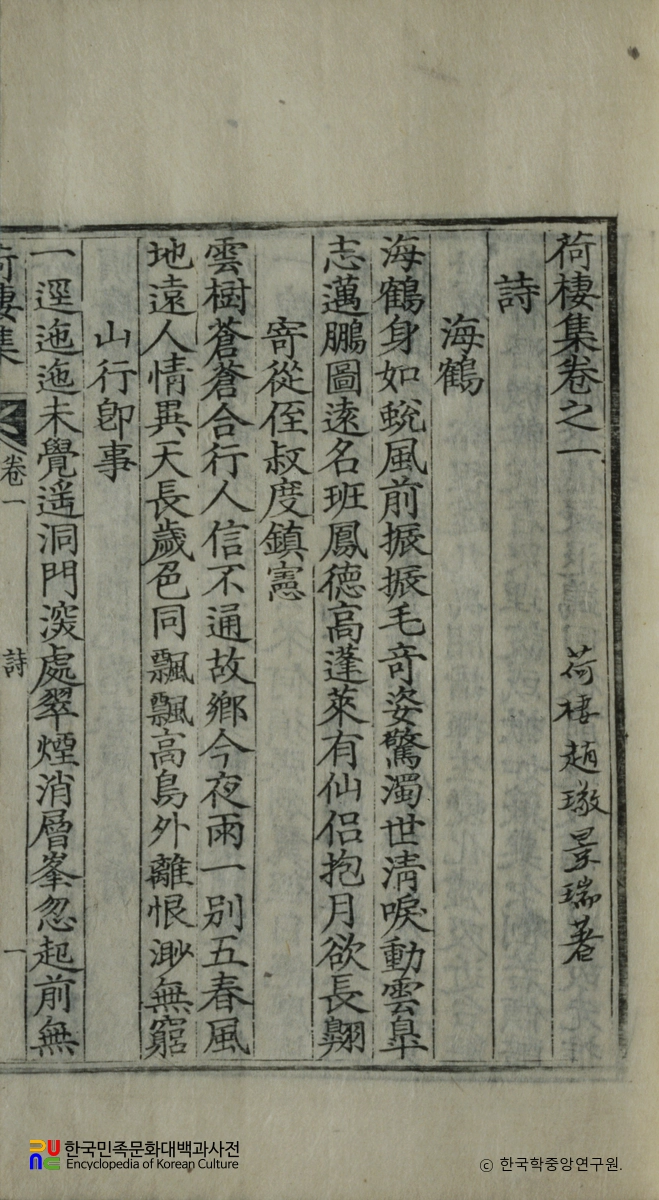 荷棲集卷之一
荷棲趙璥景瑞著
詩
海鶴
海鶴身如蛻風前振振毛奇姿驚濁世淸唳動雲皐
志邁鵬圖遠名班鳳德高蓬萊有仙侶抱月欲長翶
寄從侄叔度鎭憲
雲樹蒼蒼合行人信不通故鄕今夜雨一別五春風
地遠人情異天長歲色同飄飄高鳥外離恨渺無窮
山行卽事
一逕迤迤未覺遥洞門深處翠煙消層峯忽起前無
荷棲集
卷一
詩
一
한국민족문화대백과사전
Encyclopedia of Korean Culture
© 한국학중앙연구원.